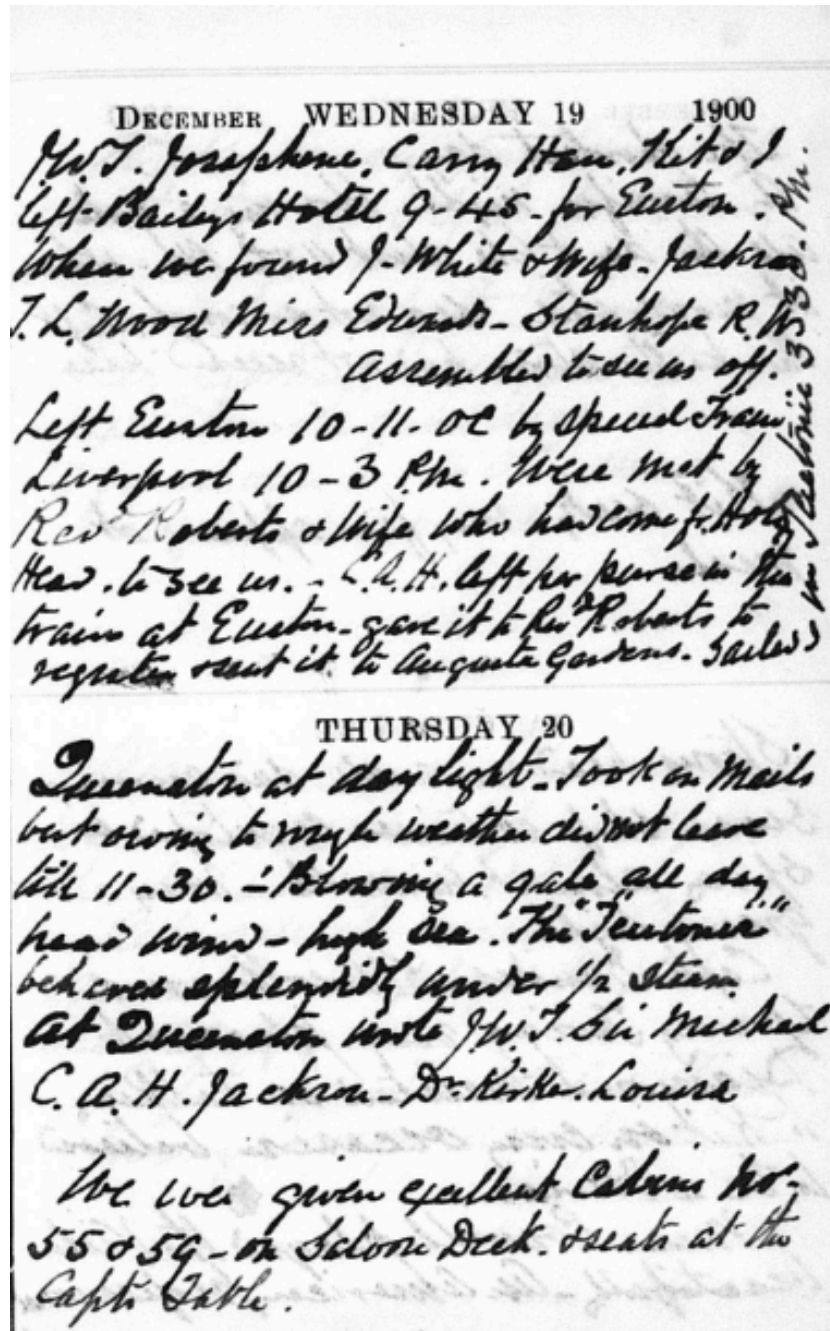 DECEMBER WEDNESDAY 19 1900
J.W.T. Josephene, Carry Han, Kit & I
left Baileys Hotel 9-45 - for Euston.
When we found J- White & Wife - Jackson
T. L. Wood Miss Edwards - Stanhope R. W.
Assembled to see us off.
Left Euston 10-11- OC by special Train
Liverpool 10-3 P.m. Were met by
Revd Roberts & Wife who had come fr. Holy
Head. to see us. - C.A.H. left her purse in the
train at Euston - gave it to Revd Roberts to
register & sent it to Augusta Gardens - Sailed
in Teutonic 3-30 P.m.
THURSDAY 20
Queenston at day light - Took on Mails
but owing to rough weather did not leave
till 11-30. - Blowing a gale all day
head wind - high sea. The "Teutonic"
behaved splendidly under 1/2 steam
At Queenston wrote J.W.T. Sir Michael
C. A. H. Jackson - Dr. Kirker. Louisa
We wer given excellent Cabins No-
55 & 59 - on Saloon Deck. & seats at the
Capts Table.